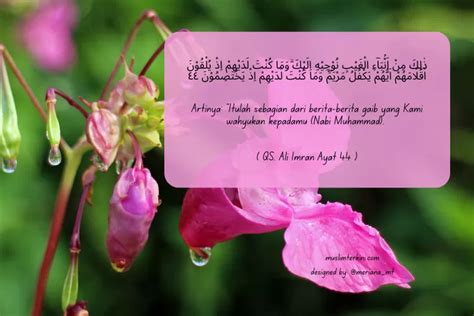 ذٰلِكَ مِنْ اَنْۢبَاۤءِ الْغَيْبِ نُوْحِيْهِ اِلَيْكَۗ وَمَا كُنْتَ لَدَيْهِمْ اِذْ يُلْقُوْنَ
اَقْلَامَهُمْ اَيُّهُمْ يَكْفُلُ مَرْيَمَۖ وَمَا كُنْتَ لَدَيْهِمْ اِذْ يَخْتَصِمُوْنَ ٤٤
Artinya: "Itulah sebagian dari berita-berita gaib yang Kami
wahyukan kepadamu (Nabi Muhammad).
( QS. Ali Imran Ayat 44 )
muslimterkini.com
designed by :@meriana_mt